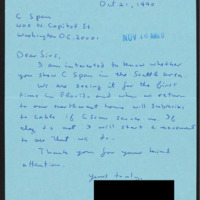 Oct 21, 1990
C Span
400 N. Capitol St.
Washington DC. 20001
NOV 20 1990
Dear Sirs,
I am interested to know whether
you show C Span in the Seattle area.
We are seeing it for the first
time in Florida and when we return
to our northwest home will subscribe
to cable if C Span serves us. If
they do not I will start a movement
to see that we do.
Thank you for your kind
attention.
Yours truly,